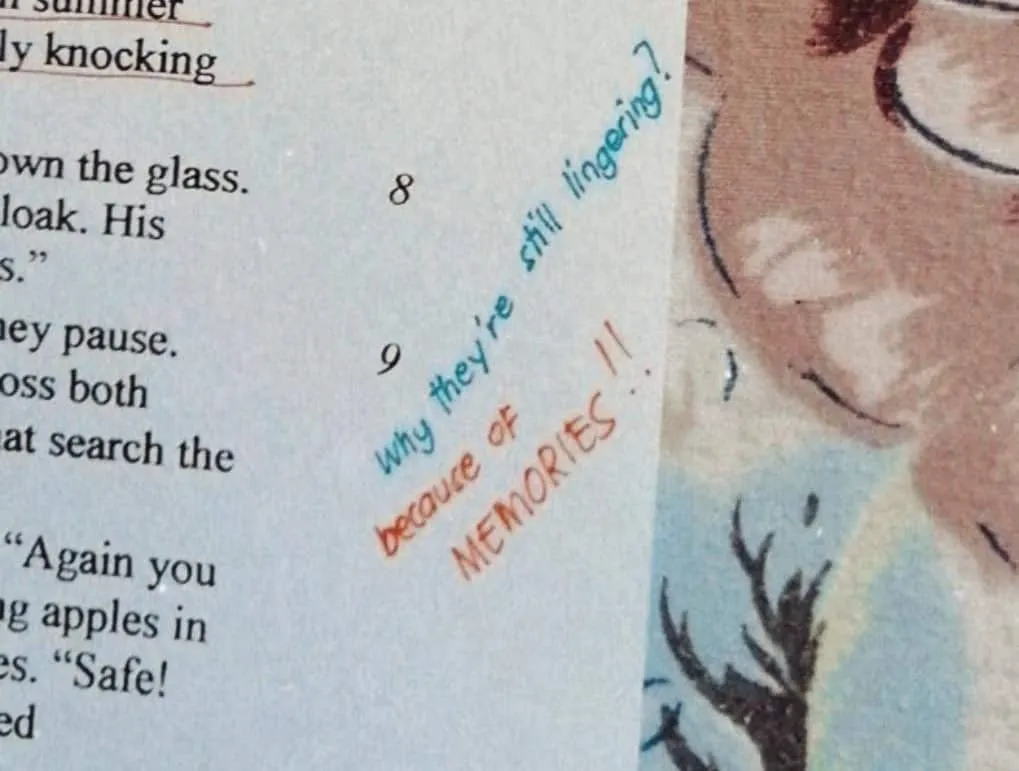 summer
knocking
the glass.
8
His
pause.
9
both
search the
“Again you
apples in
“Safe!
why they're still lingering?
because of
MEMORIES!!